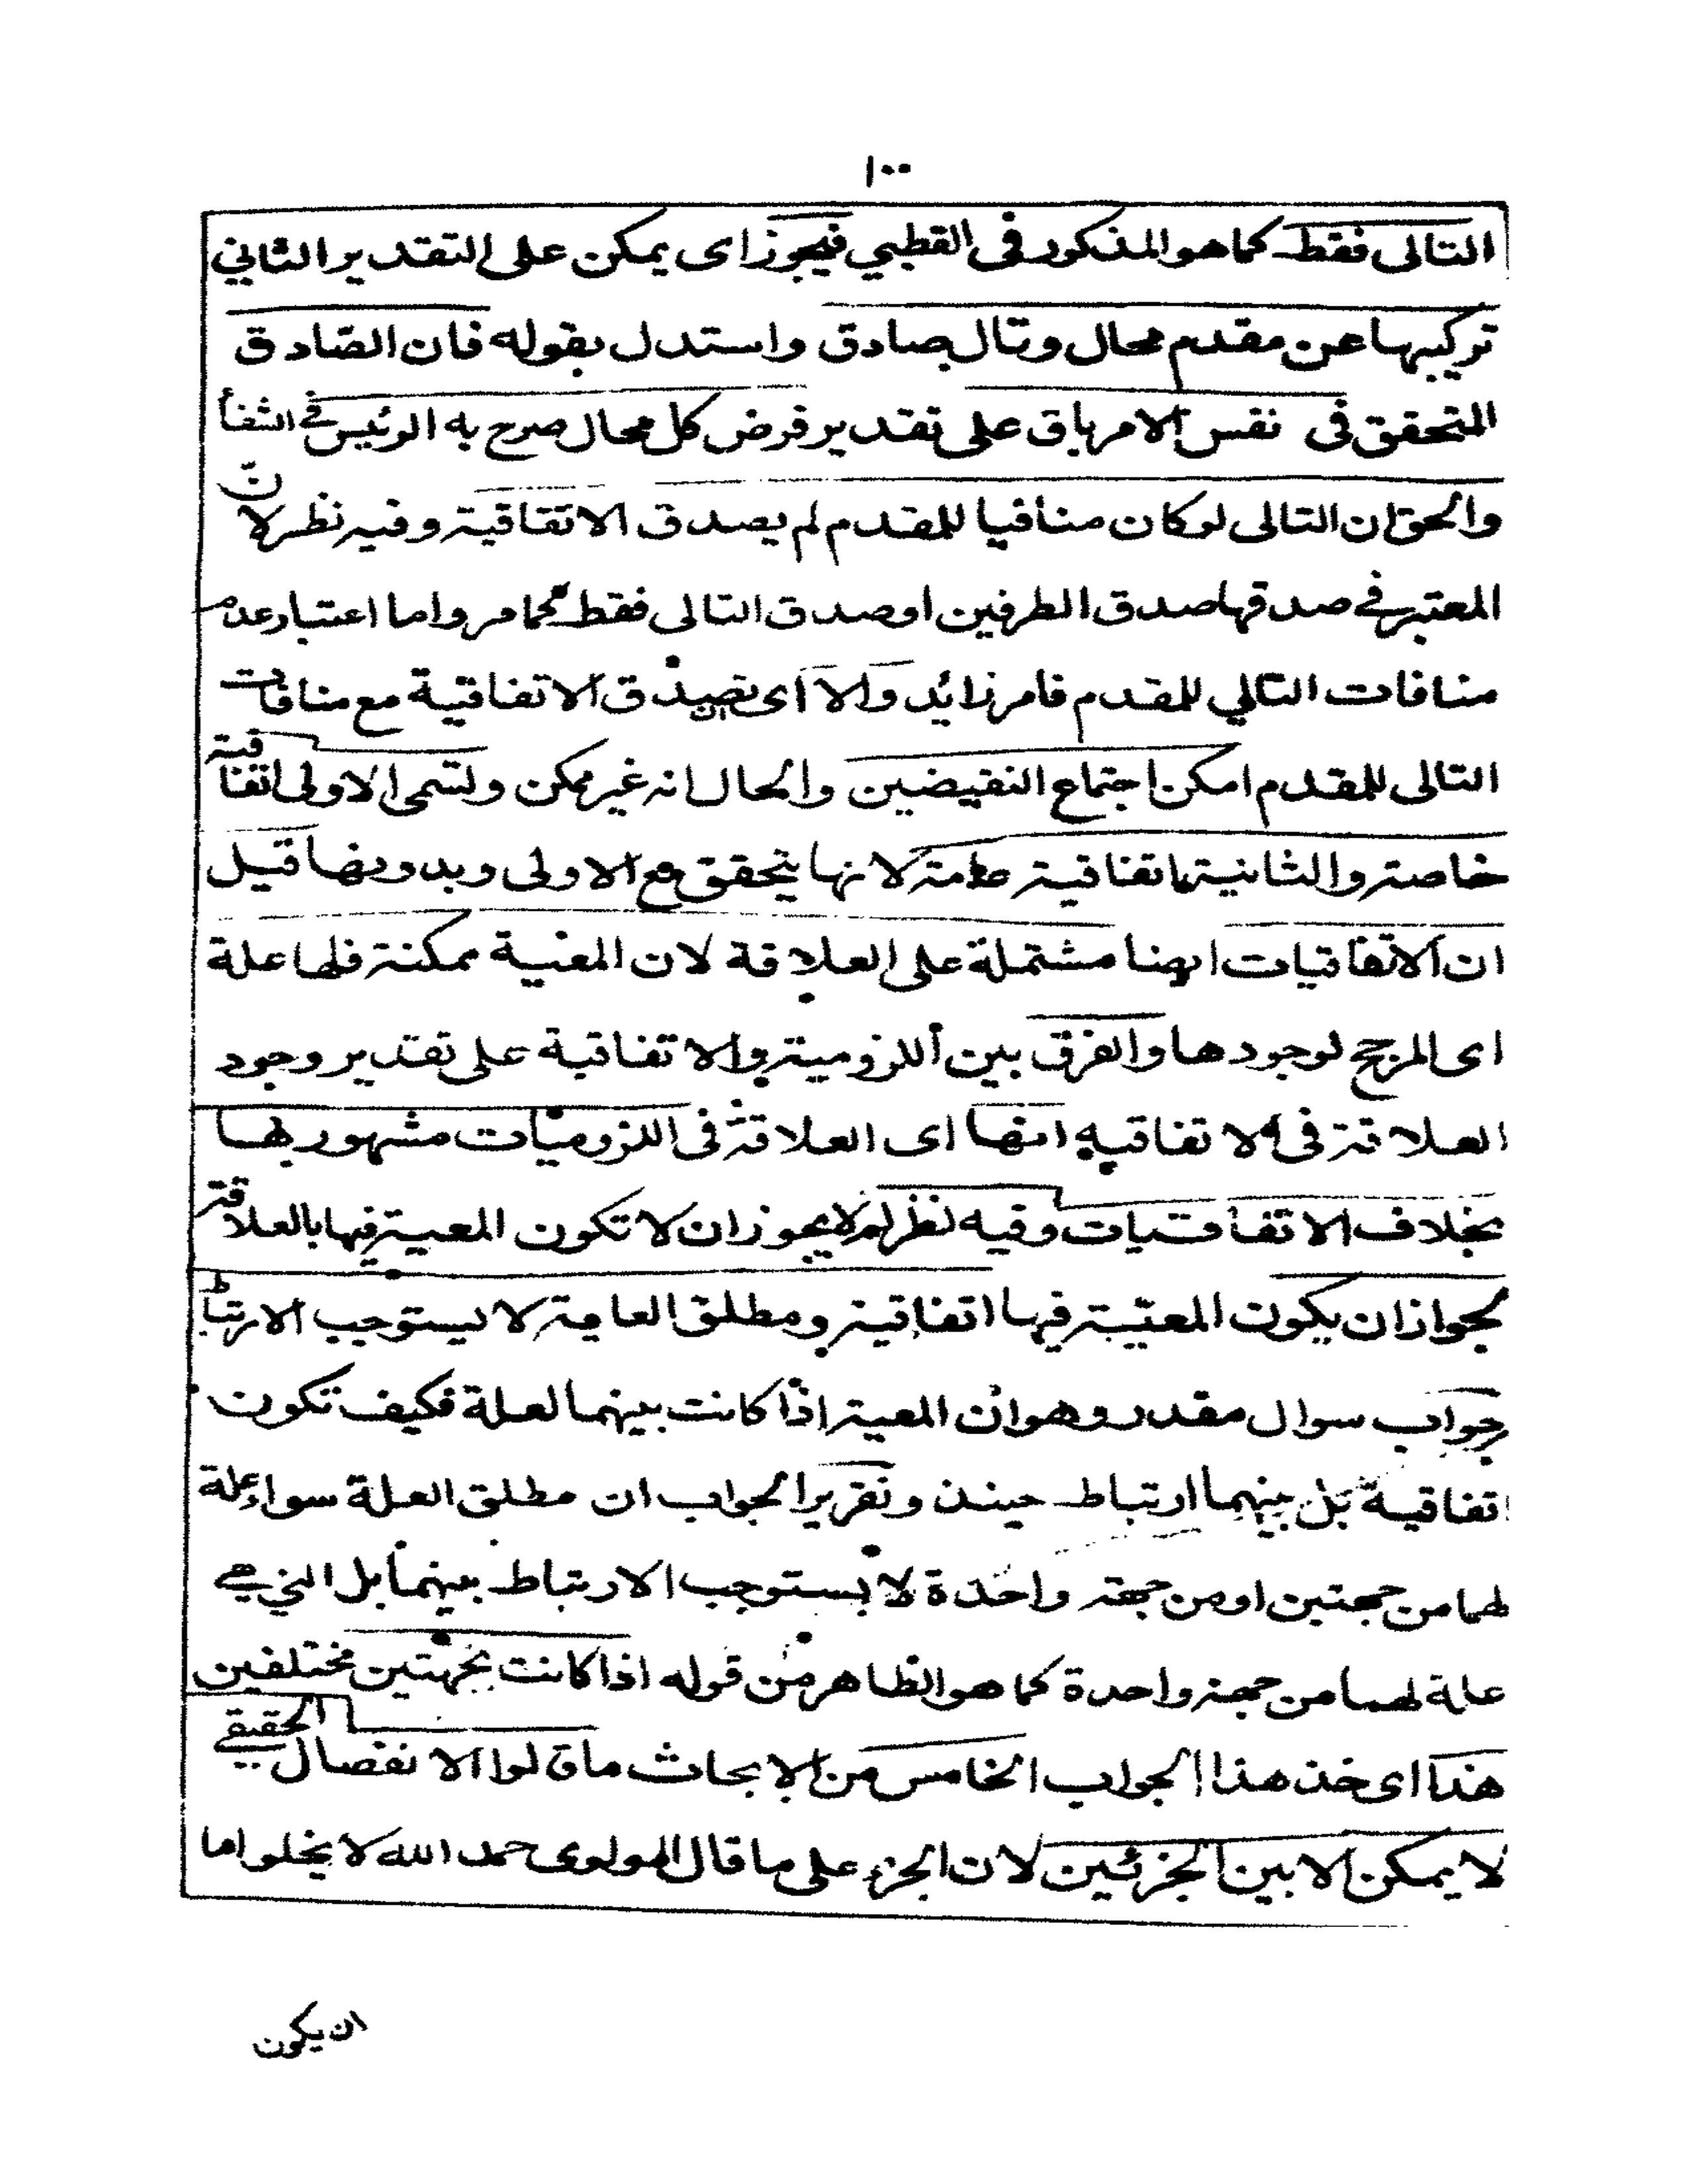 ١٠٠
التالى فقط كما هو المذكور فى القطبي فيجوز اى يمكن على التقدير الثاني
تركيبها عن مقدم محال وتال صادق واستدل بقوله فان الصّادق
المتحقق فى نفس الامر باق على تقدير فرض كل محال صرح به الرئيس في الشفأ
والحق ان التالى لو كان منافيا للمقدم لم يصدق الاتفاقية وفيه نظر لانّ
المعتبر في صدقها صدق الطرفين او صدق التالى فقط كما مر واما اعتبار عدم
منافات التالي للمقدم فامر زائد والا اى تصدق الاتفاقية مع منافات
التالى للمقدم امكن اجتماع النقيضين والحال انه غير ممكن وتسمى الاولى اتفاقية
خاصة والثانية اتفاقية عامة لانها يتحقق مع الاولى وبدونها قيل
ان الاتفاقيات ايضا مشتملة على العلاقة لان المعية ممكنة فلها علة
اى المرجح لوجودها والفرق بين اللزومية والاتفاقية على تقدير وجود
العلاقة فى الاتفاقيه انها اى العلاقة فى اللزوميات مشهور بها
بخلاف الاتفاقيات وفيه نظر لم لا يجوز ان لا تكون المعية فيها بالعلاقة
لجواز ان يكون المعيّة فيها اتفاقية ومطلق العامة لا يستوجب الارتباط
جواب سوال مقدر وهو ان المعية اذا كانت بينهما لعلة فكيف تكون
اتفاقية بل بينهما ارتباط حينئذ وتقرير الجواب ان مطلق العلة سواء علة
لهما من جهتين او من جهة واحدة لا يستوجب الارتباط بينهما بل الذي هي
علة لهما من جهة واحدة كما هو الظاهر من قوله اذا كانت بجهتين مختلفين
هذا اى خذ هذا الجواب الخامس من الابحاث ما قالوا الانفصال الحقيقي
لا يمكن الا بين الجزئين لان الجزء على ما قال المولوى حمد الله لا يخلوا ما
ان يكون